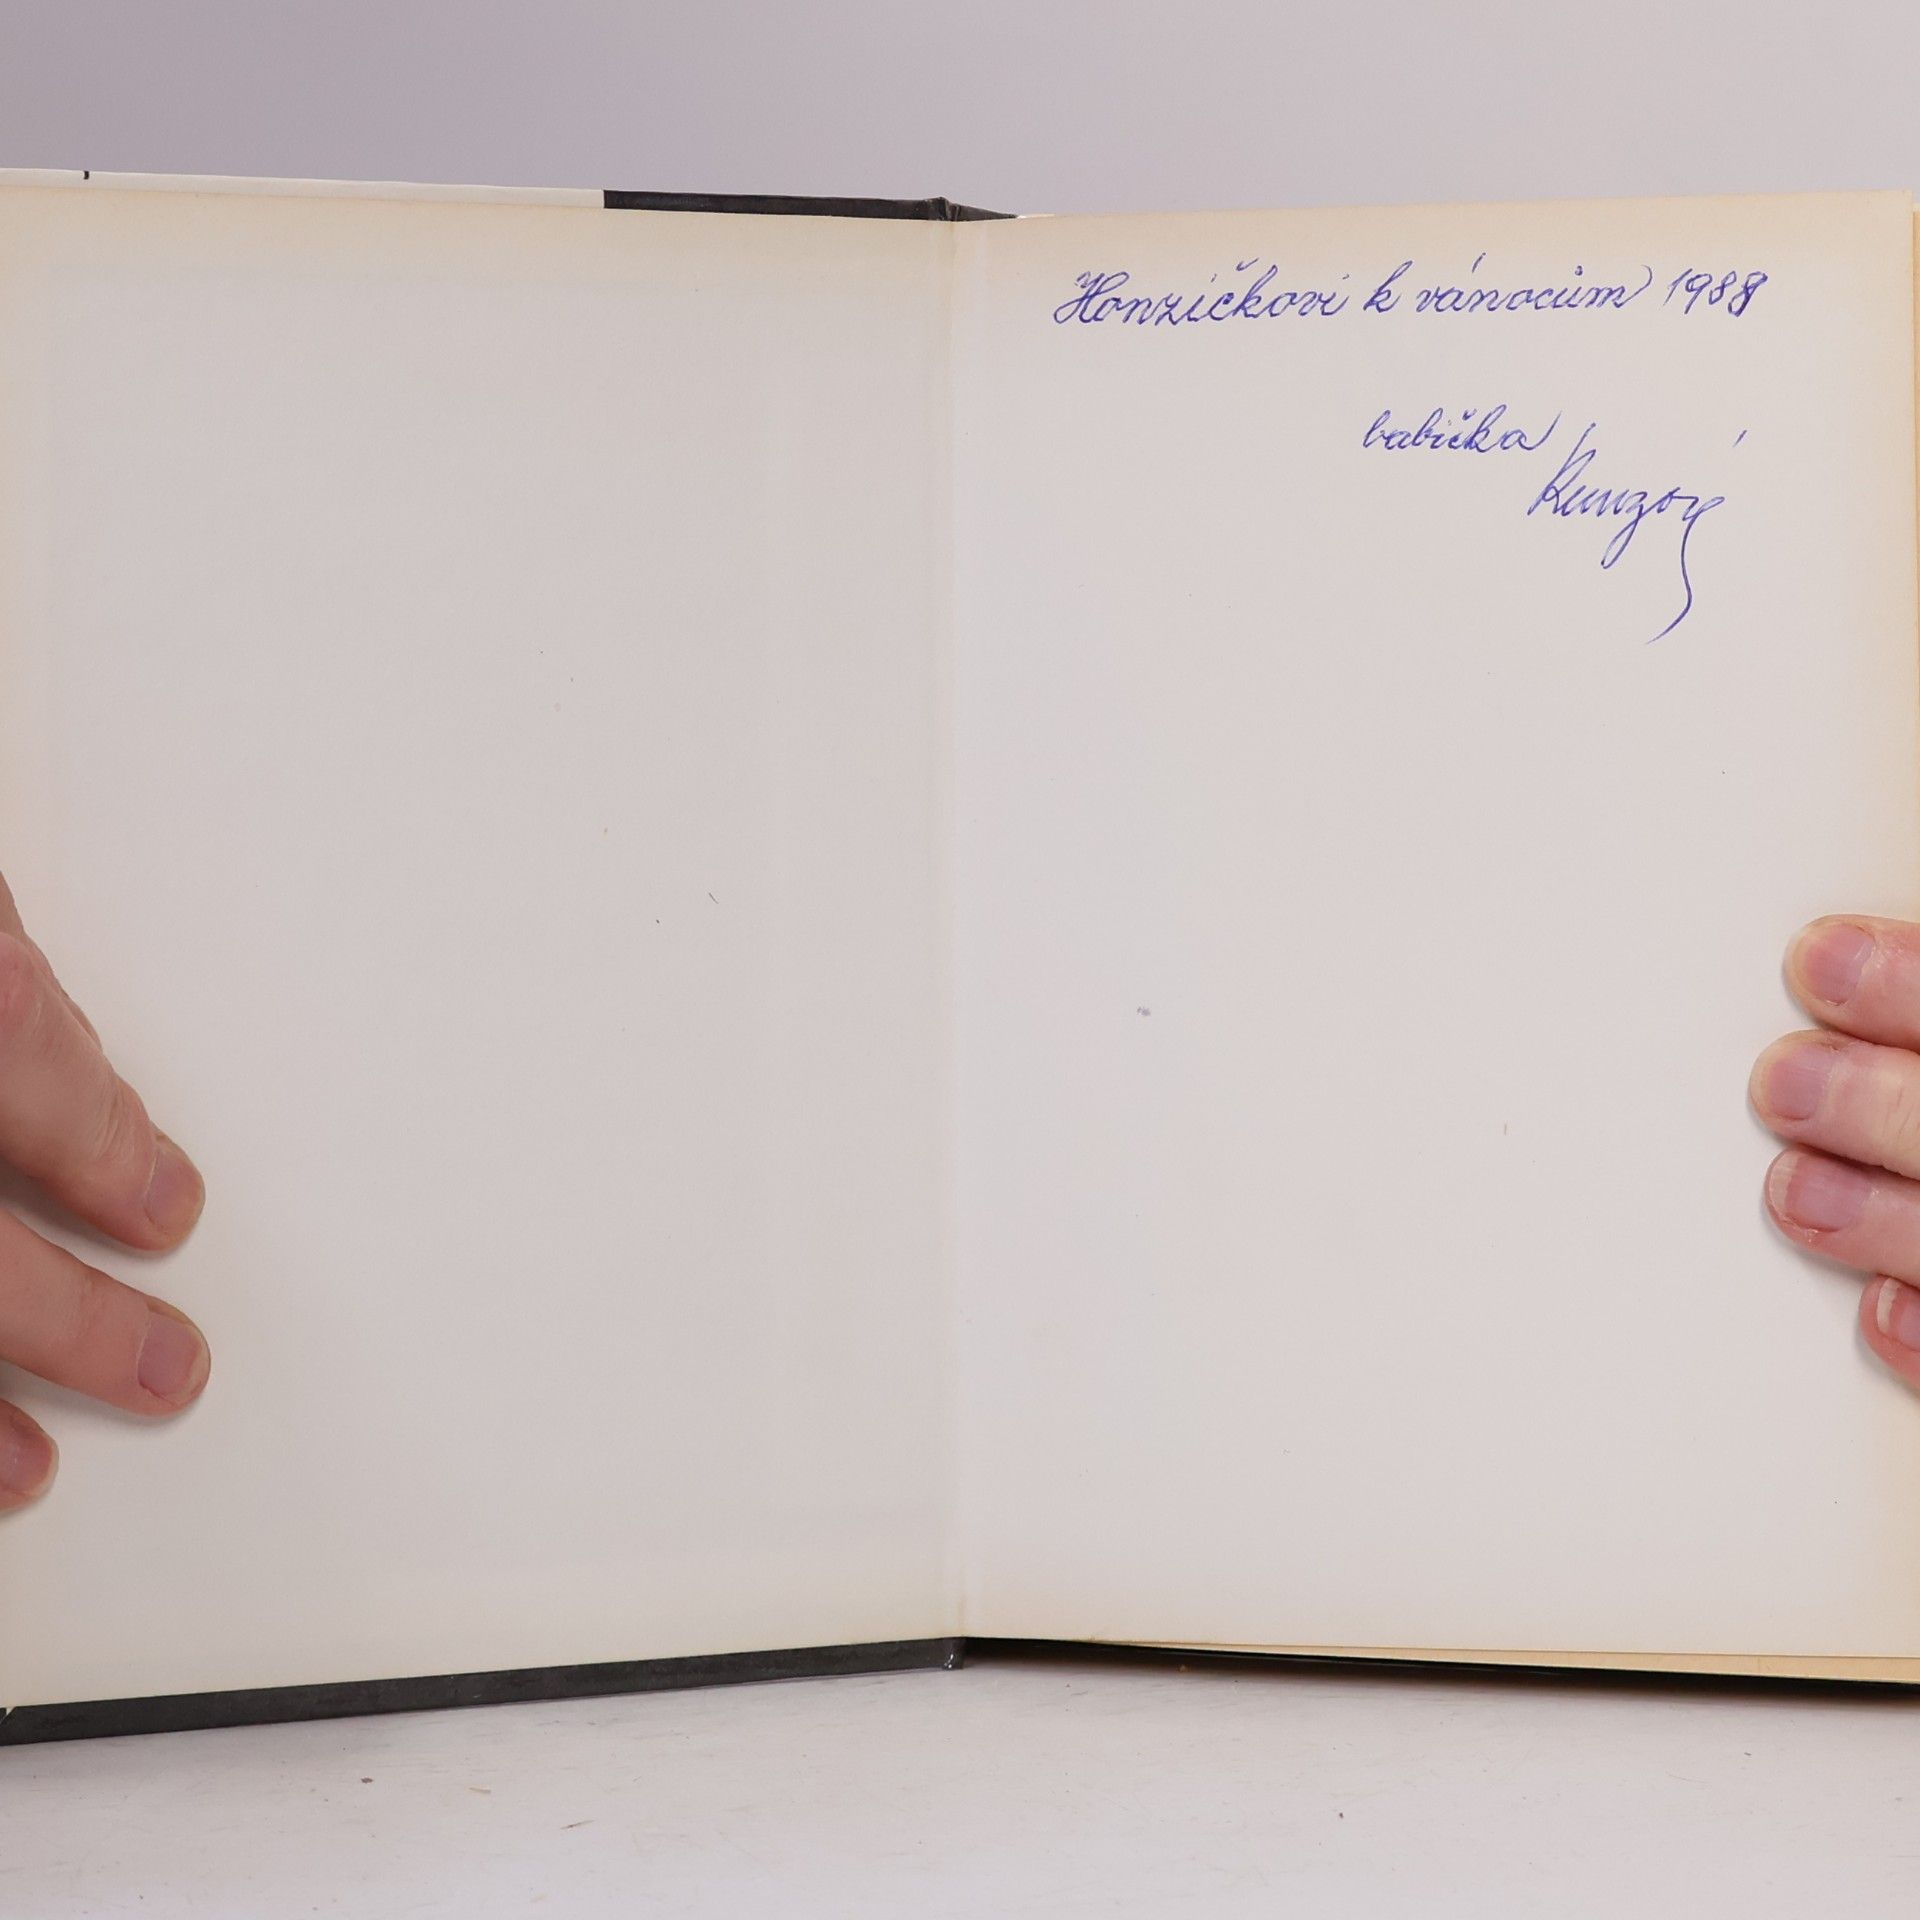 Honzíčkovi k vánocům 1988
babička